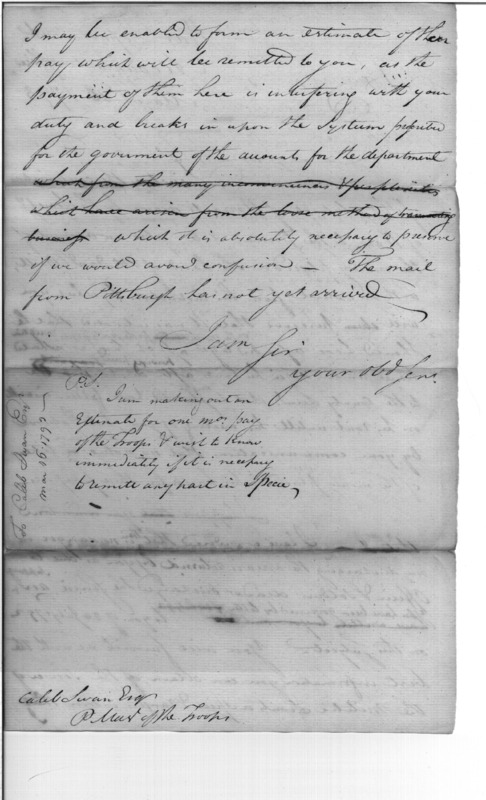 I may be enabled to form an estimate of their
pay which will be remitted to you, as the
payment of them here is interfering with your
duty and breaks in upon the System
for the government of the accounts for the department
which from the many inconveniences & perplexities
which have arisen from the loose method of transacting
business which it is absolutely necessary to pursue
if we would avoid confusion — The mail
from Pittsburgh has not yet arrived
I am Sir
your obd Serv.
P.S.
I am making out an
Estimate for one mos. pay
of the Troops & wish to know
immediately if it is necessary
to remit any part in Specie
To Caleb Swan Esqr
mar 16, 1793
Caleb Swan Esqr
P. Mastr of the Troops